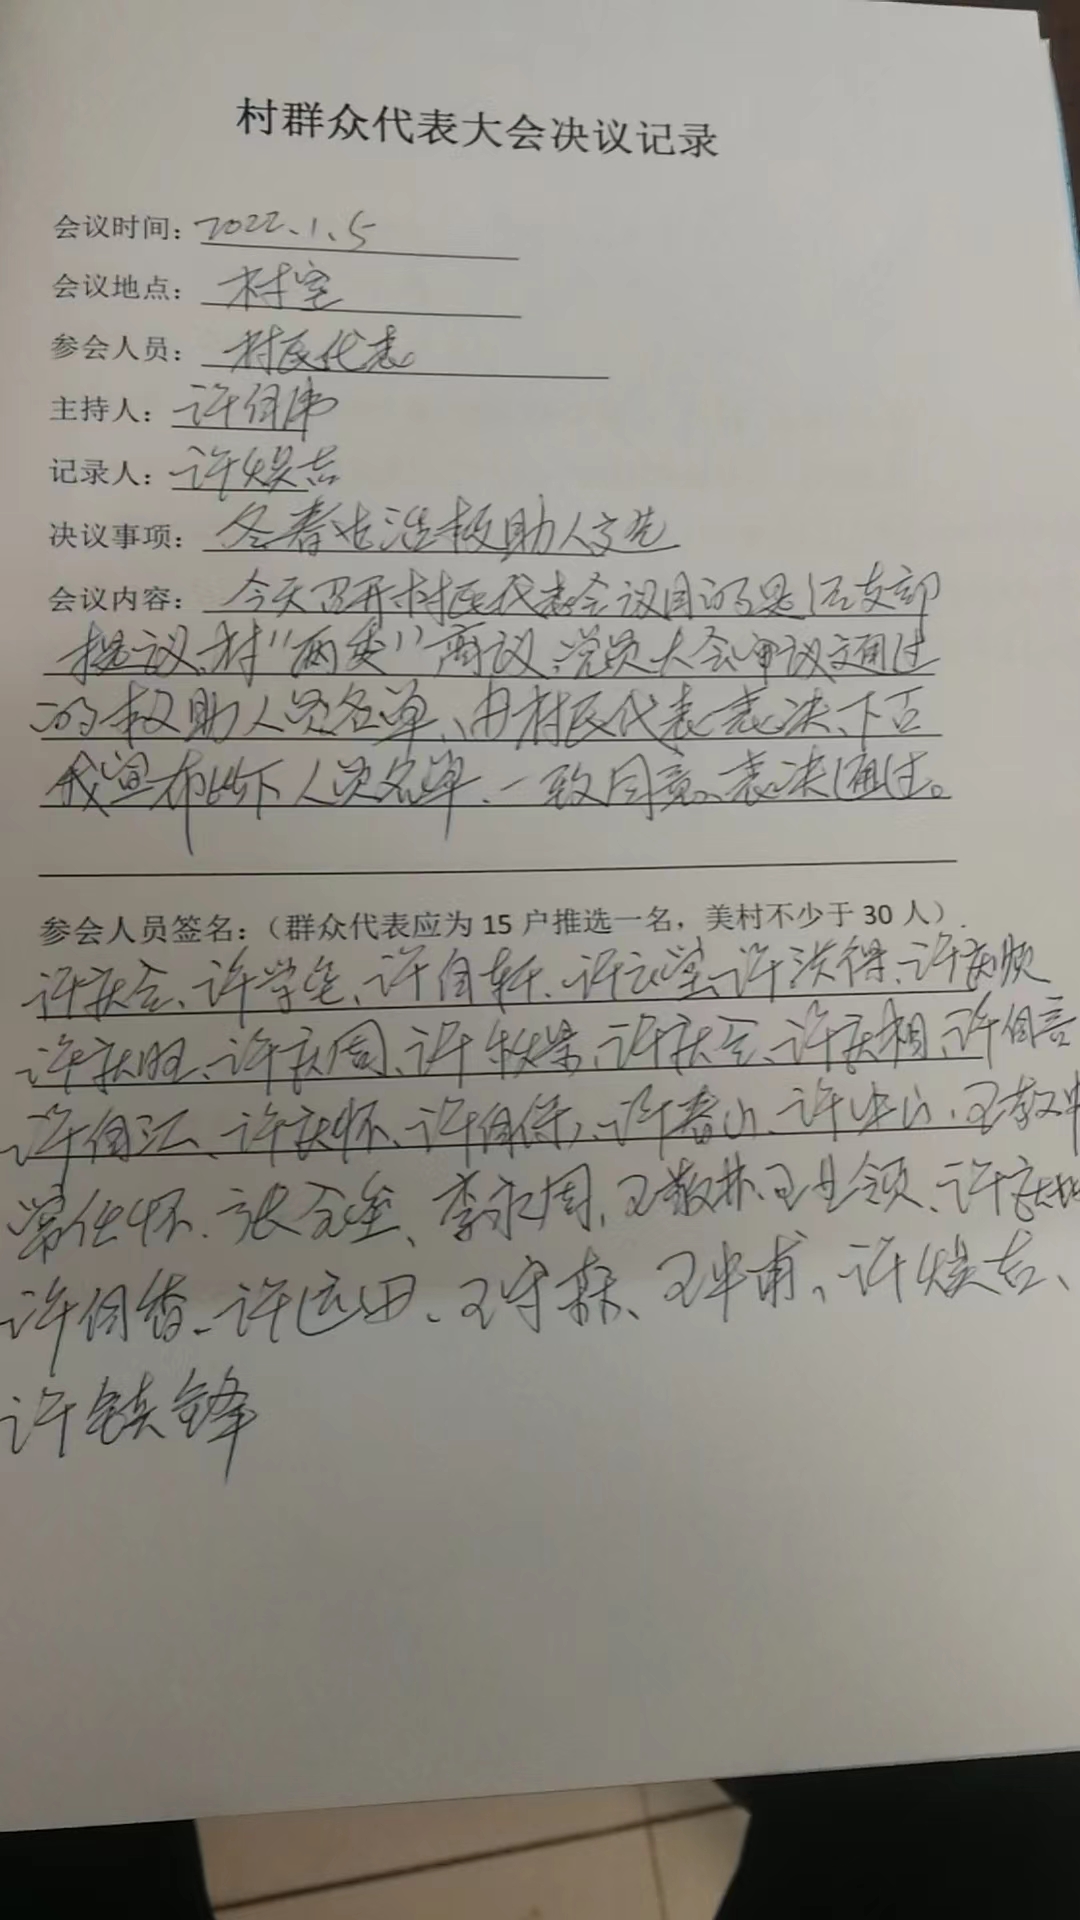 村群众代表大会决议记录
会议时间：2022.1.5
会议地点：村室
参会人员：村民代表
主持人：许自伟
记录人：许焕吉
决议事项：冬春生活救助人文选
会议内容：今天召开村民代表会议目的是经支部
提议、村“两委”商议、党员大会审议通过
的救助人员名单、由村民代表表决、下面
我宣布以下人员名单、一致同意、表决通过。
参会人员签名：（群众代表应为 15 户推选一名，美村不少于 30 人）
许庆会、许学生、许自轩、许云堂、许洪得、许庆顺
许庆旺、许庆周、许秋荣、许庆会、许庆相、许自言
许自江、许庆怀、许自保、许春山、许中山、王敬中
常任怀、张合奎、李永周、王敬林、王月领、许庆
许自香、许运田、王守森、王中甫、许焕吉、
许镇锋